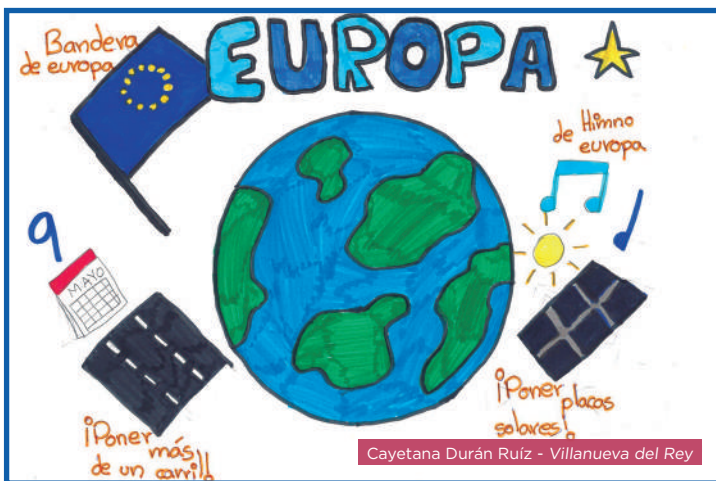 Bandera
de europa
EUROPA
de Himno
europa
9
MAYO
¡Poner más
de un carril!
¡Poner placas
solares!
Cayetana Durán Ruíz - Villanueva del Rey